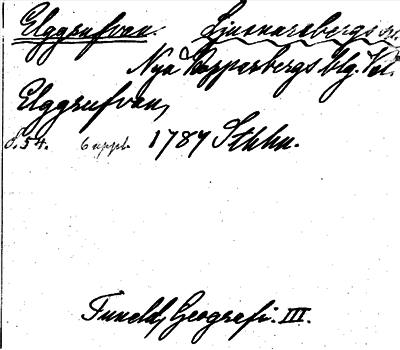 Elggrufvan. Ljusnarsbergs sn.
Nya Kopparbergs blg. Vm.
Elggrufvan,
s. 54. 6 uppl. 1787 Sthlm.
Tuneld, Geografi. III.